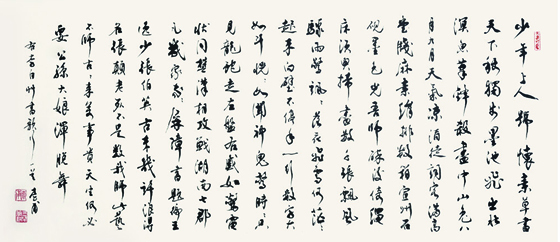 少年上人號懷素草書
天下稱獨步墨池飛出北
溟魚筆鋒殺盡中山兔八
月九月天氣凉酒徒詞客滿高
堂牋麻素絹排數箱宣州石
硯墨色光吾師醉後倚繩
床須臾掃盡數千張飄風
驟雨驚颯颯落花飛雪何茫茫
起來向壁不停手一行數字大
如斗怳怳如聞神鬼驚時時只
見龍蛇走左盤右蹙如驚電
狀同楚漢相攻戰湖南七郡
凡幾家家家屏障書題遍王
逸少張伯英古來幾許浪得
名張顛老死不足數我師此藝
不師古古來萬事貴天生何必
要公孫大娘渾脫舞
右李白草書歌行